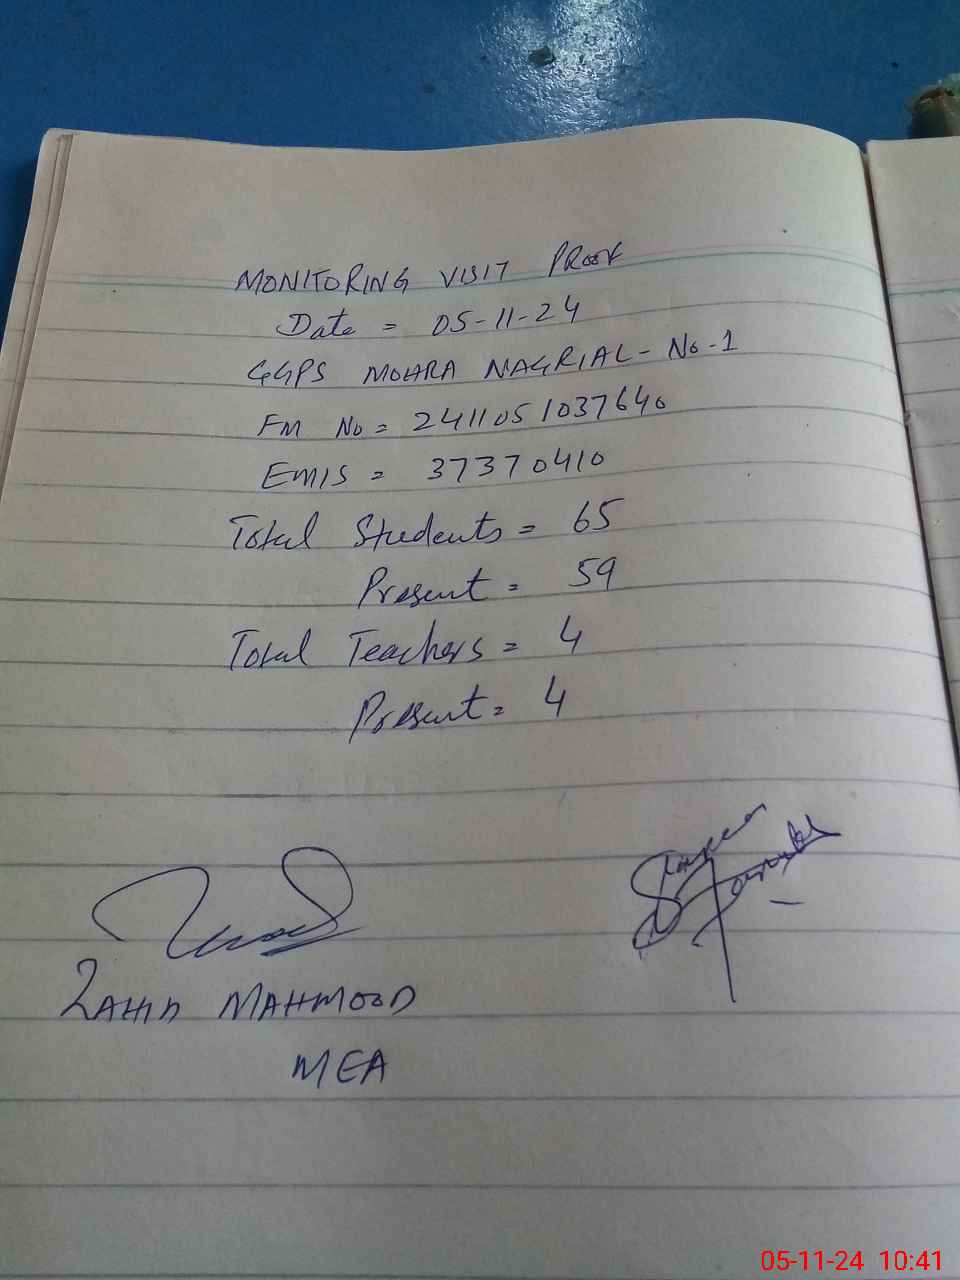 MONITORING VISIT PROOF
Date = 05-11-24
GGPS MOHRA NAGRIAL - No-1
FM No = 2411051037640
EMIS = 37370410
Total Students = 65
Present = 59
Total Teachers = 4
Present = 4
ZAHID MAHMOOD
MEA
05-11-24 10:41